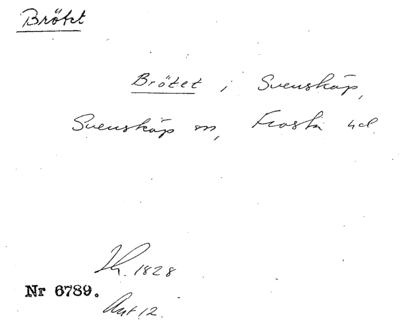 Brötet
Brötet i Svenskåp,
Svenskåp sn, Frosta hd
Lh. 1828
Nr 6789.
Akt 12.